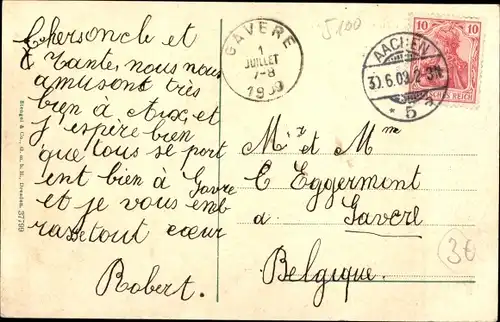 Cher oncle et
Tante, nous nous
amusont très
bien à Aix, et
j'espère bien
que tous se port
ent bien à Gavre
et je vous emb
rasse tout cœur
Robert.
Stengel & Co., G. m. b. H., Dresden. 37799
GAVERE
1
JUILLET
7-8
1909
5100
AACHEN
30.6.09. 2-3N.
* 5 a
10 10
DEUTSCHES REICH
Mr et Mme
C Eggermont
à Gavere
Belgique.
3€